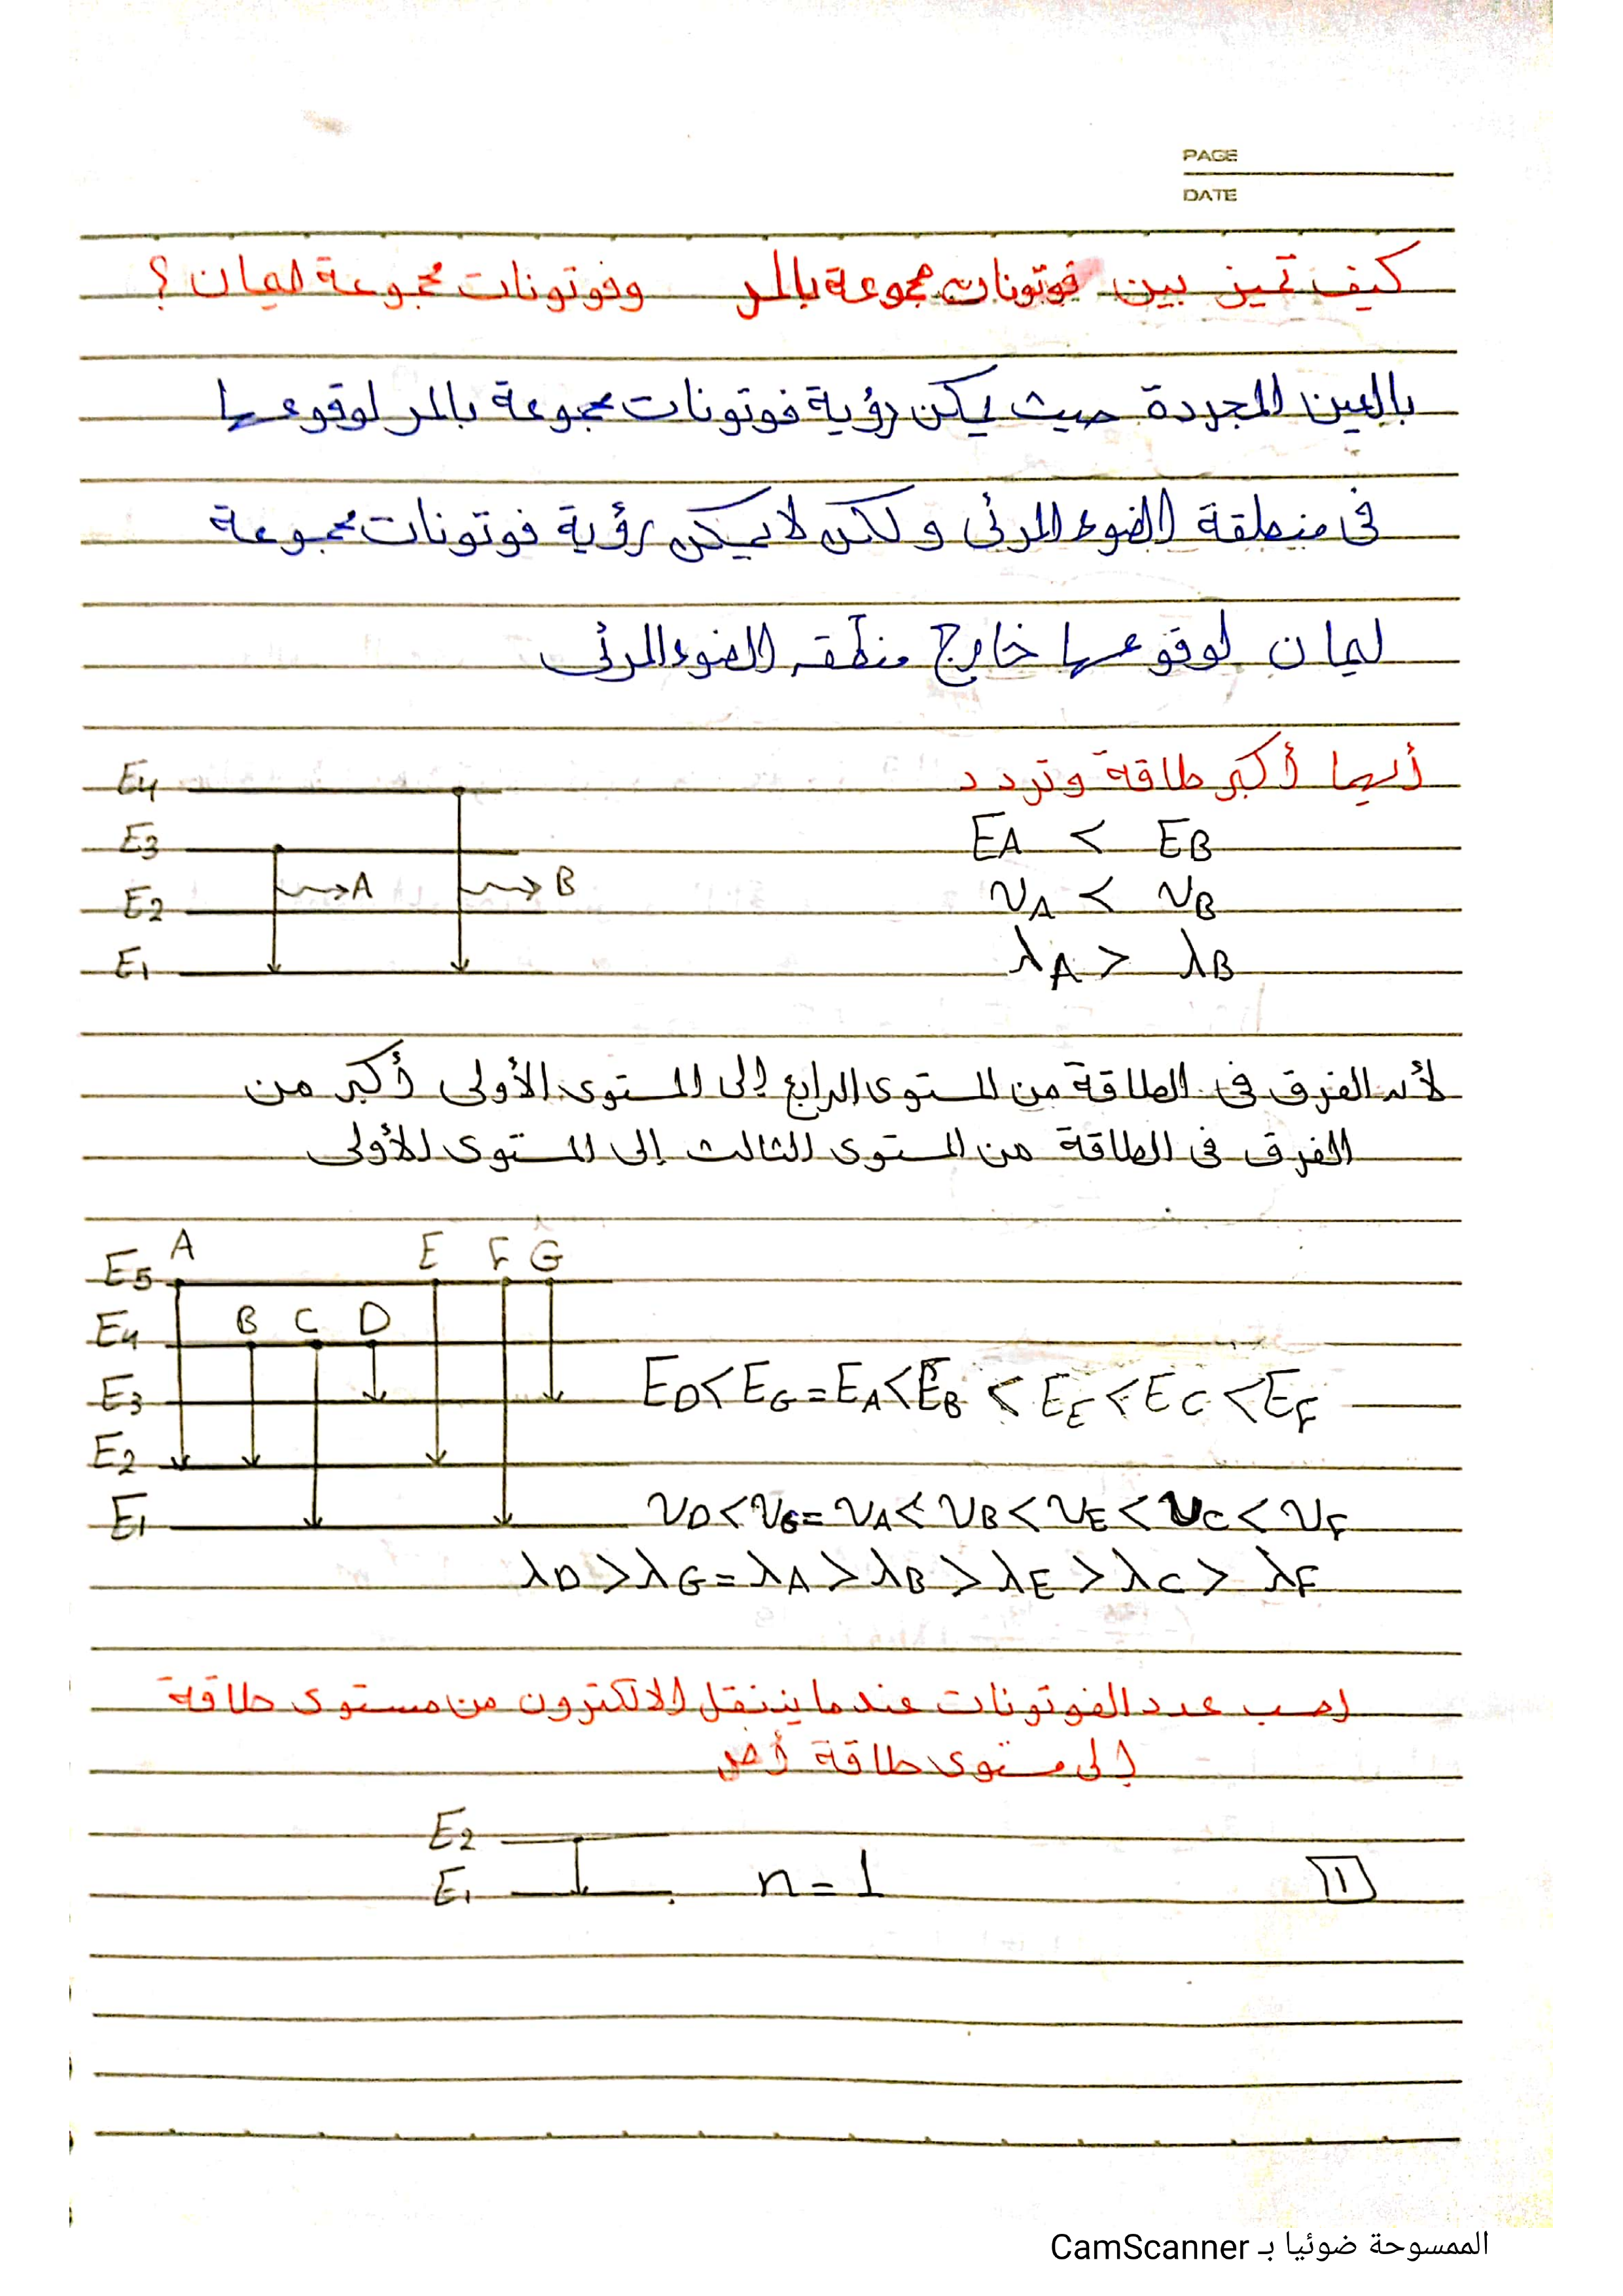 PAGE
DATE
كيف تميز بين فوتونات مجموعة بالمر وفوتونات مجموعة ليمان ؟
بالعين المجردة حيث يمكن رؤية فوتونات مجموعة بالمر لوقوعها
فى منطقة الضوء المرئى ولكن لا يمكن رؤية فوتونات مجموعة
ليمان لوقوعها خارج منطقه الضوء المرئى
أيهما أكبر طاقة وتردد
E4
E3
E2
E1
A
B
EA < EB
νA < νB
λA > λB
لأن الفرق فى الطاقة من المستوى الرابع إلى المستوى الأولى أكبر من
الفرق فى الطاقة من المستوى الثالث إلى المستوى الأولى
A E F G
E5
B C D
E4
E3
E2
E1
ED < EG = EA < EB < EE < EC < EF
νD < νG = νA < νB < νE < νC < νF
λD > λG = λA > λB > λE > λC > λF
احسب عدد الفوتونات عندما ينتقل الالكترون من مستوى طاقة
إلى مستوى طاقة أخر
E2
E1
n = 1
١
الممسوحة ضوئيا بـ CamScanner